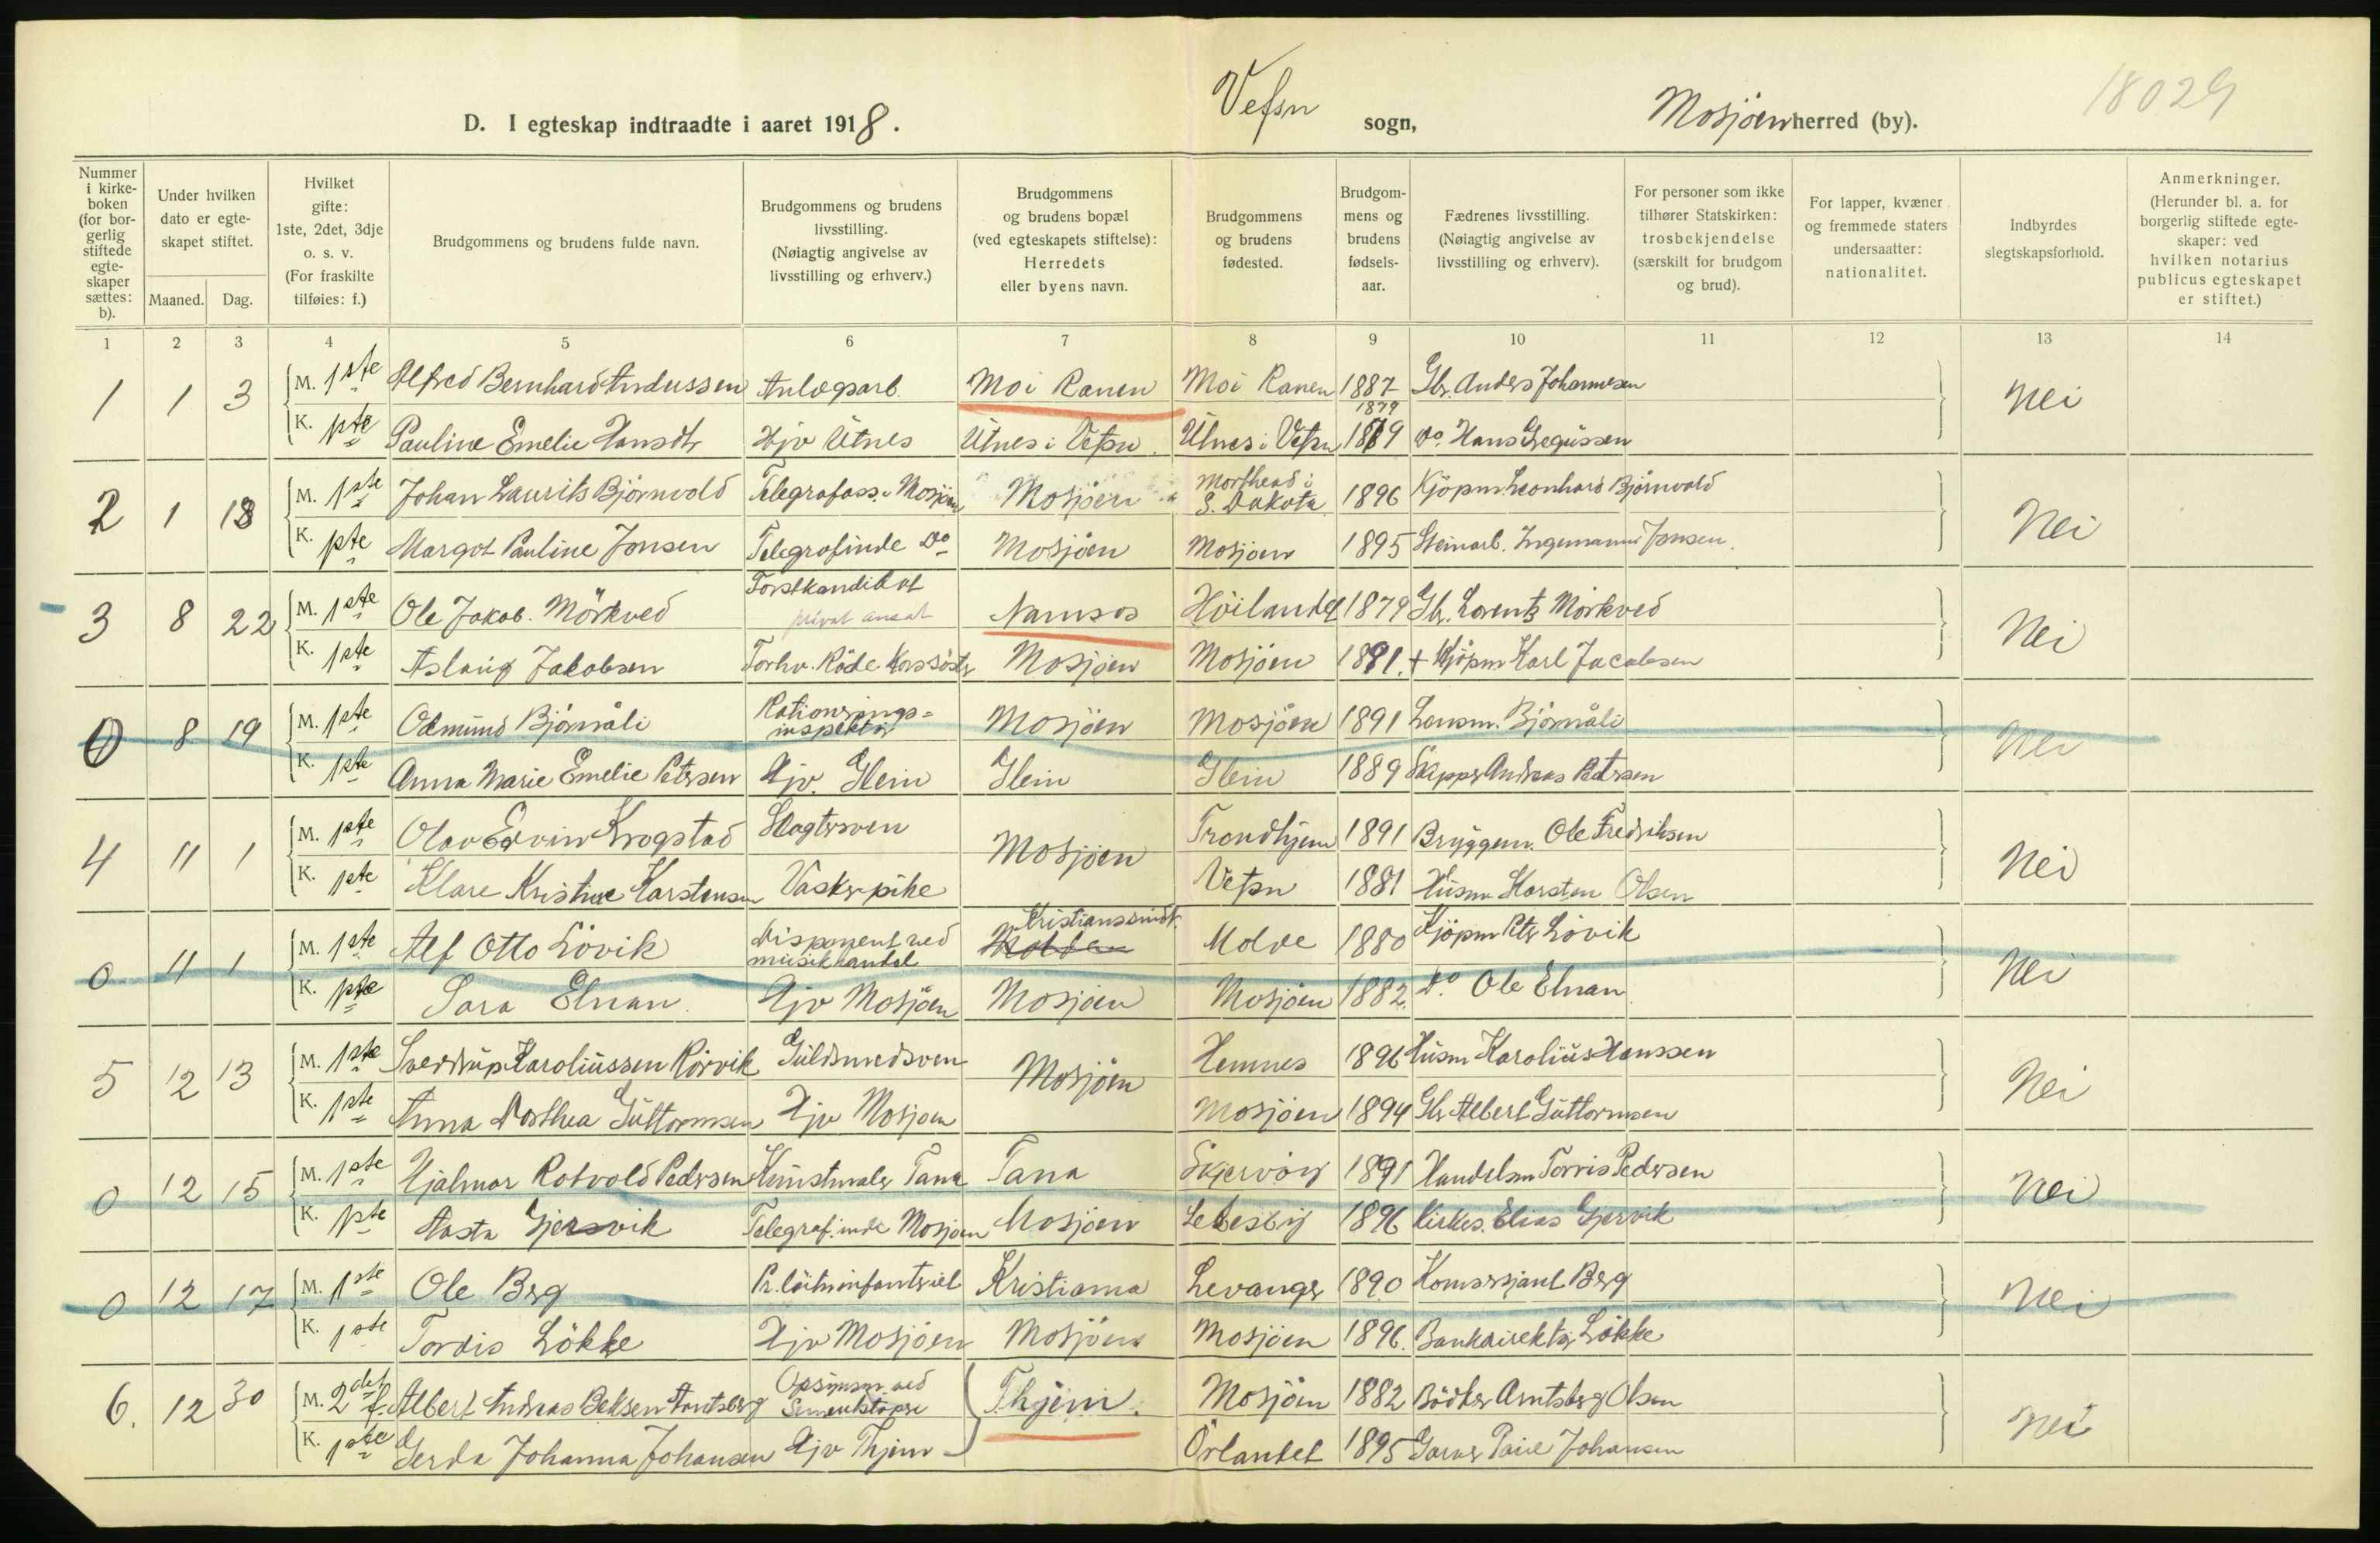 18029
D. I egteskap indtraadte i aaret 1918. Vefsn sogn, Mosjöen herred (by).
Nummer i kirke-boken (for bor-gerlig stiftede egte-skaper sættes: b).
Under hvilken dato er egte-skapet stiftet.
Maaned. Dag.
Hvilket gifte: 1ste, 2det, 3dje o. s. v. (For fraskilte tilføies: f.)
Brudgommens og brudens fulde navn.
Brudgommens og brudens livsstilling. (Nøiagtig angivelse av livsstilling og erhverv.)
Brudgommens og brudens bopæl (ved egteskapets stiftelse): Herredets eller byens navn.
Brudgommens og brudens fødested.
Brudgom-mens og brudens fødsels-aar.
Fædrenes livsstilling. (Nøiagtig angivelse av livsstilling og erhverv).
For personer som ikke tilhører Statskirken: trosbekjendelse (særskilt for brudgom og brud).
For lapper, kvæner og fremmede staters undersaatter: nationalitet.
Indbyrdes slegtskapsforhold.
Anmerkninger. (Herunder bl. a. for borgerlig stiftede egte-skaper: ved hvilken notarius publicus egteskapet er stiftet.)
1 2 3 4 5 6 7 8 9 10 11 12 13 14
1 1 3 M. 1ste Alfred Bernhard Andussen Anlægsarb. Moi Ranen Moi Ranen 1887 Gbr. Anders Johannesen Nei
K. 1ste Pauline Emelie Hansdtr Hjv Utnes Utnes i Vefsn. Utnes i Vefsn 1879 1879 Do. Hans Zegussen
2 1 18 M. 1ste Johan Laurits Björnvold Telegrafass. Mosjöen Mosjöen Morthead i S. Dakota 1896 Kjöpm. Leonhard Björnvold Nei
K. 1ste Margot Pauline Jonsen Telegrafinde Do Mosjöen Mosjöen 1895 Steinarb. Ingemann Jonsen.
3 8 22 M. 1ste Ole Jakob. Mörkved Forstkandidat privat ansat Namsos Höilandet 1879 Gbr. Lorentz Mörkved Nei
K. 1ste Aslaug Jakobsen Forhv. Röde Korssöstr Mosjöen Mosjöen 1881. + Kjöpm Karl Jacobsen
0 8 19 M. 1ste Odmund Björnåli Rationerings=inspektör Mosjöen Mosjöen 1891 Lensm. Björnåli Nei
K. 1ste Anna Marie Emelie Petersen Hjv. Glein Glein Glein 1889 Skipper Andreas Petersen
4 11 1 M. 1ste Olav Edvin Krogstad Slagtersven Mosjöen Trondhjem 1891 Bryggem. Ole Fredriksen Nei
K. 1ste Klara Kristine Karstensen Vaskerpike Vefsn 1881 Husm Karsten Olsen
0 11 1 M. 1ste Alf Otto Lövik Disponent ved musikhandel Kristianssund. Molde 1880 Kjöpm Petr Lövik Nei
K. 1ste Sara Elnan. Hjv Mosjöen Mosjöen Mosjöen 1882. Do. Ole Elnan
5 12 13 M. 1ste Sverdrup Karoliussen Rörvik Guldsmedsven Mosjöen Hemnes 1896 Husm Karolius Hanssen Nei
K. 1ste Anna Dorthea Guttormsen Hjv Mosjöen Mosjöen 1894 Gbr Albert Guttormsen
0 12 15 M. 1ste Hjalmar Rotvold Pedersen Kunstmaler Tana Tana Skjervöy 1891 Handelsm Torris Pedersen Nei
K. 1ste Aasta Gjersvik Telegrafinde Mosjöen Mosjöen Lebesby 1896 Kirkes. Elias Gjervik
0 12 17 M. 1ste Ole Berg Pr. löitn infanteriet Kristiania Levanger 1890 Komersjant Berg Nei
K. 1ste Tordis Lökke Hjv Mosjöen Mosjöen Mosjöen 1896. Bankdirektör Lökke
6. 12 30 M. 2det f. Albert Andreas Beksen Arntsberg Opsynsm ved Sementstöperi Thjem. Mosjöen 1882 Bödker Arntsberg Olsen Nei
K. 1ste Gerda Johanna Johansen Hjv Thjem Örlandet 1895 Garver Paul Johansen